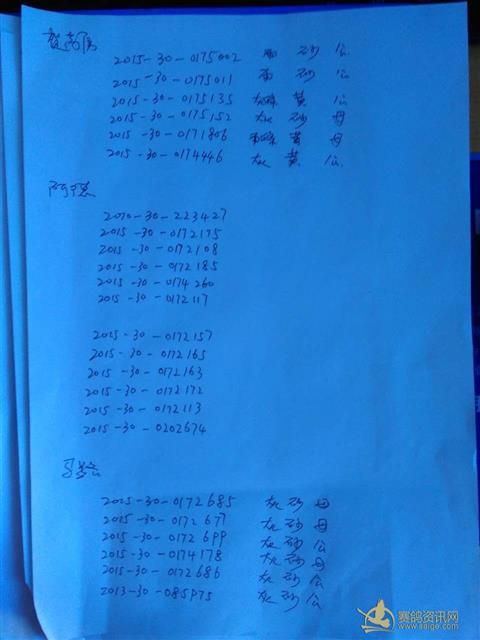 2015-30-0175002 雨 砂 公
2015-30-0175011 雨 砂 公
2015-30-0175135 黄 公
2015-30-0175152 灰 砂 母
2015-30-0171806 黄 母
2015-30-0174446 灰 黄 公
2010-30-223427
2015-30-0172175
2015-30-0172108
2015-30-0172185
2015-30-0174260
2015-30-0172117
2015-30-0172157
2015-30-0172165
2015-30-0172163
2015-30-0172172
2015-30-0172113
2015-30-0202674
2015-30-0172685 灰 砂 母
2015-30-0172677 灰 砂 母
2015-30-0172699 灰 砂 公
2015-30-0174178 灰 砂 母
2015-30-0172686 灰 砂 公
2013-30-085975 灰 砂 公
赛鸽资讯网
www.saige.com